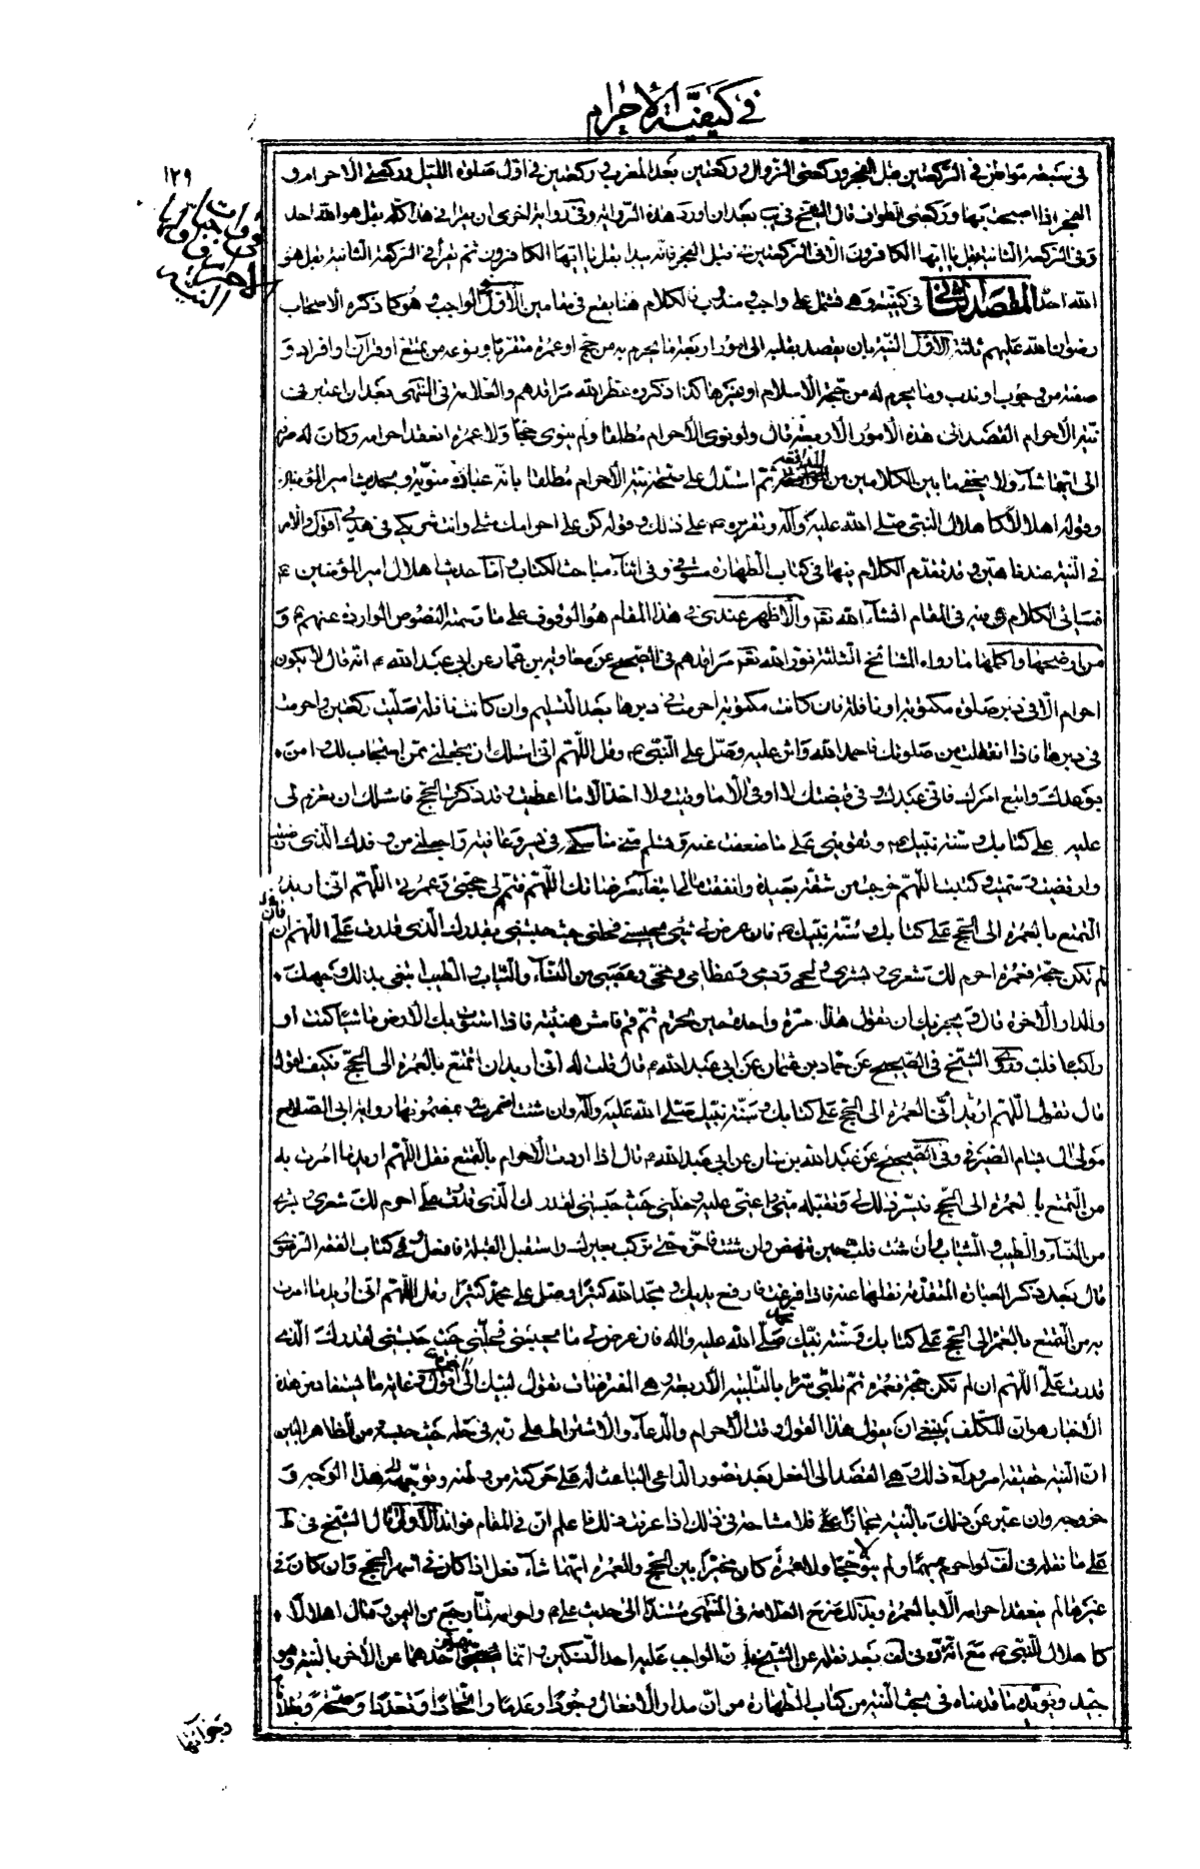 في كيفية الإحرام
١٢٩
في سبعة مواطن في الركعتين قبل الفجر وركعتي الزوال وركعتين بعد المغرب وركعتين في اول صلوة الليل وركعتي الاحرام و
الفجر اذا اصبحت بها وركعتي الطواف قال الشيخ في يب بعد ان اورد هذه الرواية وفي رواية اخرى ان يقرأ في هذا كله بقل هو الله احد
وفي الركعة الثانية بقل يا ايها الكافرون الا في الركعتين قبل الفجر فانه يبدأ بقل يا ايها الكافرون ثم يقرأ في الركعة الثانية بقل هو
الله احد المقصد الثاني في كيفيته وهي تشتمل على واجب ومندوب فالكلام هنا يقع في مقامين الاول الواجب وهو كما ذكره الاصحاب
رضوان الله عليهم ثلثة الاول النية بان يقصد بقلبه الى امور اربعة ما يحرم به من حج او عمرة متقربا ونوعه من تمتع او قران او افراد و
صفته من وجوب او ندب وما يحرم له من حجة الاسلام او غيرها كذا ذكروه عطر الله مراقدهم والعلامة في المنتهى بعد ان اعتبر في
نية الاحرام القصد الى هذه الامور الاربعة قال ولو نوى الاحرام مطلقا ولم ينوى حجا ولا عمرة انعقد احرامه وكان له صرفه
الى ايهما شاء ولا يخفى ما بين الكلامين من المدافعة ثم استدل على صحة نية الاحرام مطلقا بانه عبادة منوية وبحديث امير المؤمنين
وقوله اهلالا كاهلال النبي صلى الله عليه وآله وتقريره ص على ذلك وقوله كن على احرامك مثلي وانت شريكي في هديي اقول والامر
في النية عندنا هين وقد تقدم الكلام فيها في كتاب الطهارة مستوفى وفي اثناء مباحث الكتاب واما حديث اهلال امير المؤمنين ع
فسيأتي الكلام فيه في المقام انشاء الله تعالى والاظهر عندي في هذا المقام هو الوقوف على ما رسمته النصوص الواردة عنهم ع و
من اوضحها واكملها ما رواه المشائخ الثلثة نور الله تعالى مراقدهم في الصحيح عن معاوية بن عمار عن ابي عبد الله ع انه قال لا يكون
احرام الا في دبر صلوة مكتوبة او نافلة فان كانت مكتوبة احرمت في دبرها بعد التسليم وان كانت نافلة صليت ركعتين واحرمت
في دبرها فاذا انفتلت من صلوتك فاحمد الله واثن عليه وصل على النبي ص وقل اللهم اني اسئلك ان تجعلني ممن استجاب لك وامن
بوعدك واتبع امرك فاني عبدك وفي قبضتك لا اوقى الا ما وقيت ولا اخذ الا ما اعطيت وقد ذكرت الحج فاسئلك ان تعزم لي
عليه على كتابك وسنة نبيك ص وتقويني على ما ضعفت عنه وتسلم مني مناسكي في يسر وعافية واجعلني من وفدك الذي رضيت
وارتضيت وسميت وكتبت اللهم خرجت من شقة بعيدة وانفقت مالي ابتغاء مرضاتك اللهم فتمم لي حجتي وعمرتي اللهم اني اريد
التمتع بالعمرة الى الحج على كتابك وسنة نبيك ص فان عرض لي شيء يحبسني فحلني حيث حبستني بقدرك الذي قدرت علي اللهم ان
لم تكن حجة فعمرة احرم لك شعري وبشري ولحمي ودمي وعظامي ومخي وعصبي من النساء والثياب والطيب ابتغي بذلك وجهك
والدار الاخرة قال ويجزيك ان تقول هذا مرة واحدة حين تحرم ثم قم فامش هنيئة فاذا استوت بك الارض ماشيا كنت او
راكبا فلب وروى الشيخ في الصحيح عن حماد بن عثمان عن ابي عبد الله ع قال قلت له اني اريد ان اتمتع بالعمرة الى الحج فكيف اقول
قال تقول اللهم اني اريد ان اتمتع بالعمرة الى الحج على كتابك وسنة نبيك صلى الله عليه وآله وان شئت اضمرت وبمضمونها رواية ابي الصلاح
مولى بسام الصيرفي وفي الصحيح عن عبد الله بن سنان عن ابي عبد الله ع قال اذا اردت الاحرام بالتمتع فقل اللهم اريد ما امرت به
من التمتع بالعمرة الى الحج فيسر ذلك لي وتقبله مني واعني عليه وحلني حيث حبستني لقدرك الذي قدرت علي احرم لك شعري وبشري
من النساء والطيب والثياب وان شئت قلت حين تنهض وان شئت فاخره حتى تركب بعيرك واستقبل القبلة فافعل وفي كتاب الفقه الرضوي
قال بعد ذكر العبارة المتقدم نقلها عنه فاذا فرغت فارفع يديك ومجد الله كثيرا وصل على محمد كثيرا وقل اللهم اني اريد ما امرت
به من التمتع بالعمرة الى الحج على كتابك وسنة نبيك محمد صلى الله عليه وآله فان عرض لي ما يحبسني فحلني حيث حبستني لقدرك الذي
قدرت علي اللهم ان لم تكن حجة فعمرة ثم تلبي سرا بالتلبية الاربعة وهي المفترضات تقول لبيك الى اخره اقول وغاية ما يستفاد من هذه
الاخبار هو ان المكلف ينبغي ان يقول هذا القول وقت الاحرام والدعاء والاشتراط على ربه في حله حيث حبسه ومن الظاهر البين
ان النية حقيقة امر وراء ذلك وهي القصد الى الفعل بعد تصور الداعي الباعث له على حركته من وطنه وتوجهه الى هذا الوجه و
خروجه وان عبر عن ذلك بالنية مجازا فلا مشاحة في ذلك اذا عرفت ذلك فاعلم ان في المقام فوائد الاولى قال الشيخ في ط
على ما نقله في لف لو احرم مبهما ولم ينو حجا ولا عمرة كان مخيرا بين الحج والعمرة ايهما شاء فعل اذا كان في اشهر الحج وان كان في
غيرها لم ينعقد احرامه الا بالعمرة وبذلك صرح العلامة في المنتهى مستندا الى حديث علي ع واحرامه لما رجع من اليمن وقال اهلالا
كاهلال النبي ص مع انه في لف بعد نقله عن الشيخ ان الواجب عليه احد النسكين وانما يتميز احدهما عن الاخر بالنية وهو
جيد ويؤيده ما قدمناه في مبحث النية من كتاب الطهارة من ان مدار الافعال وجودا وعدما واتحادا وتعددا وصحة وبطلانا